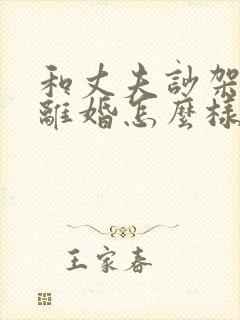 和丈夫訬架
離婚怎麼樣
王家春